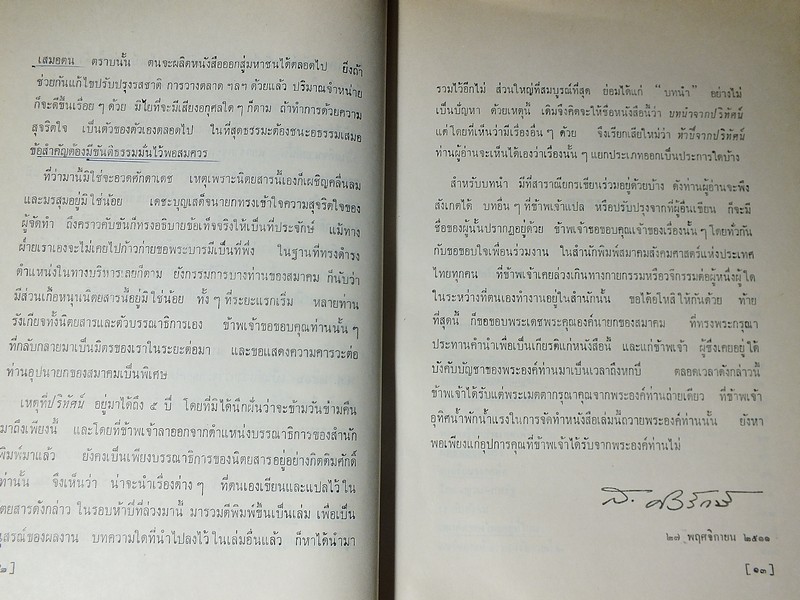 เสมอตน ตราบนั้น ตนจะผลิตหนังสือออกสู่มหาชนได้ตลอดไป ยิ่งถ้า
ช่วยกันแก้ไขปรับปรุงรสชาติ การวางตลาด ฯลฯ ด้วยแล้ว ปริมาณจำหน่าย
ก็จะดีขึ้นเรื่อย ๆ ด้วย มิไยที่จะมีเสียงอกุศลใด ๆ ก็ตาม ถ้าทำการด้วยความ
สุจริตใจ เป็นตัวของตัวเองตลอดไป ในที่สุดธรรมะต้องชนะอธรรมเสมอ
ข้อสำคัญต้องมีขันติธรรมมั่นไว้พอสมควร
ที่ว่ามานี้มิใช่จะอวดศักดาเดช เหตุเพราะนิตยสารนี้เองก็เผชิญคลื่นลม
และมรสุมอยู่มิใช่น้อย เดชะบุญเสด็จนายกทรงเข้าใจความสุจริตใจของ
ผู้จัดทำ ถึงคราวคับขันก็ทรงอธิบายข้อเท็จจริงให้เป็นที่ประจักษ์ แม้ทาง
ฝ่ายเราเองจะไม่เคยไปก้าวก่ายขอพระบารมีเป็นที่พึ่ง ในฐานที่ทรงดำรง
ตำแหน่งในทางบริหารเลยก็ตาม ยังกรรมการบางท่านของสมาคม ก็นับว่า
มีส่วนเกื้อหนุนนิตยสารนี้อยู่มิใช่น้อย ทั้ง ๆ ที่ระยะแรกเริ่ม หลายท่าน
รังเกียจทั้งนิตยสารและตัวบรรณาธิการเอง ข้าพเจ้าขอขอบคุณท่านนั้น ๆ
ที่กลับกลายมาเป็นมิตรของเราในระยะต่อมา และขอแสดงความคารวะต่อ
ท่านอุปนายกของสมาคมเป็นพิเศษ
เหตุที่ปริทัศน์ อยู่มาได้ถึง ๕ ปี โดยที่มิได้นึกฝันว่าจะข้ามวันข้ามคืน
มาถึงเพียงนี้ และโดยที่ข้าพเจ้าลาออกจากตำแหน่งบรรณาธิการของสำนัก
พิมพ์มาแล้ว ยังคงเป็นเพียงบรรณาธิการของนิตยสารอยู่อย่างกิตติมศักดิ์
ท่านั้น จึงเห็นว่า น่าจะนำเรื่องต่าง ๆ ที่ตนเองเขียนและแปลไว้ใน
ตยสารดังกล่าว ในรอบห้าปีที่ล่วงมานี้ มารวมตีพิมพ์ขึ้นเป็นเล่ม เพื่อเป็น
นุสรณ์ของผลงาน บทความใดที่นำไปลงไว้ในเล่มอื่นแล้ว ก็หาได้นำมา
๒ ]
รวมไว้อีกไม่ ส่วนใหญ่ที่สมบูรณ์ที่สุด ย่อมได้แก่ “บทนำ” อย่างไม่
เป็นปัญหา ด้วยเหตุนี้ เดิมจึงคิดจะให้ชื่อหนังสือนี้ว่า บทนำจากปริทัศน์
แต่โดยที่เห็นว่ามีเรื่องอื่น ๆ ด้วย จึงเรียกเสียใหม่ว่า ห้าปีจากปริทัศน์
ท่านผู้อ่านจะเห็นได้เองว่าเรื่องนั้น ๆ แยกประเภทออกเป็นประการใดบ้าง
สำหรับบทนำ มีที่สาราณียกรเขียนร่วมอยู่ด้วยบ้าง ดังท่านผู้อ่านจะพึง
สังเกตได้ บทอื่น ๆ ที่ข้าพเจ้าแปล หรือปรับปรุงจากที่ผู้อื่นเขียน ก็จะมี
ชื่อของผู้นั้นปรากฏอยู่ด้วย ข้าพเจ้าขอขอบคุณเจ้าของเรื่องนั้น ๆ โดยทั่วกัน
กับขอขอบใจเพื่อนร่วมงาน ในสำนักพิมพ์สมาคมสังคมศาสตร์แห่งประเทศ
ไทยทุกคน ที่ข้าพเจ้าเคยล่วงเกินทางกายกรรมหรือวจีกรรมต่อผู้หนึ่งผู้ใด
ในระหว่างที่ตนเองทำงานอยู่ในสำนักนั้น ขอได้อโหสิให้กันด้วย ท้าย
ที่สุดนี้ ก็ขอขอบพระเดชพระคุณองค์นายกของสมาคม ที่ทรงพระกรุณา
ประทานคำนำเพื่อเป็นเกียรติแก่หนังสือนี้ และแก่ข้าพเจ้า ผู้ซึ่งเคยอยู่ใต้
บังคับบัญชาของพระองค์ท่านมาเป็นเวลาถึงหกปี ตลอดเวลาดังกล่าวนี้
ข้าพเจ้าได้รับแต่พระเมตตากรุณาคุณจากพระองค์ท่านถ่ายเดียว ที่ข้าพเจ้า
อุทิศน้ำพักน้ำแรงในการจัดทำหนังสือเล่มนี้ถวายพระองค์ท่านนั้น ยังหา
พอเพียงแก่อุปการคุณที่ข้าพเจ้าได้รับจากพระองค์ท่านไม่
ส. ศิวรักษ์
๒๗ พฤศจิกายน ๒๕๑๑
[ ๑๓ ]